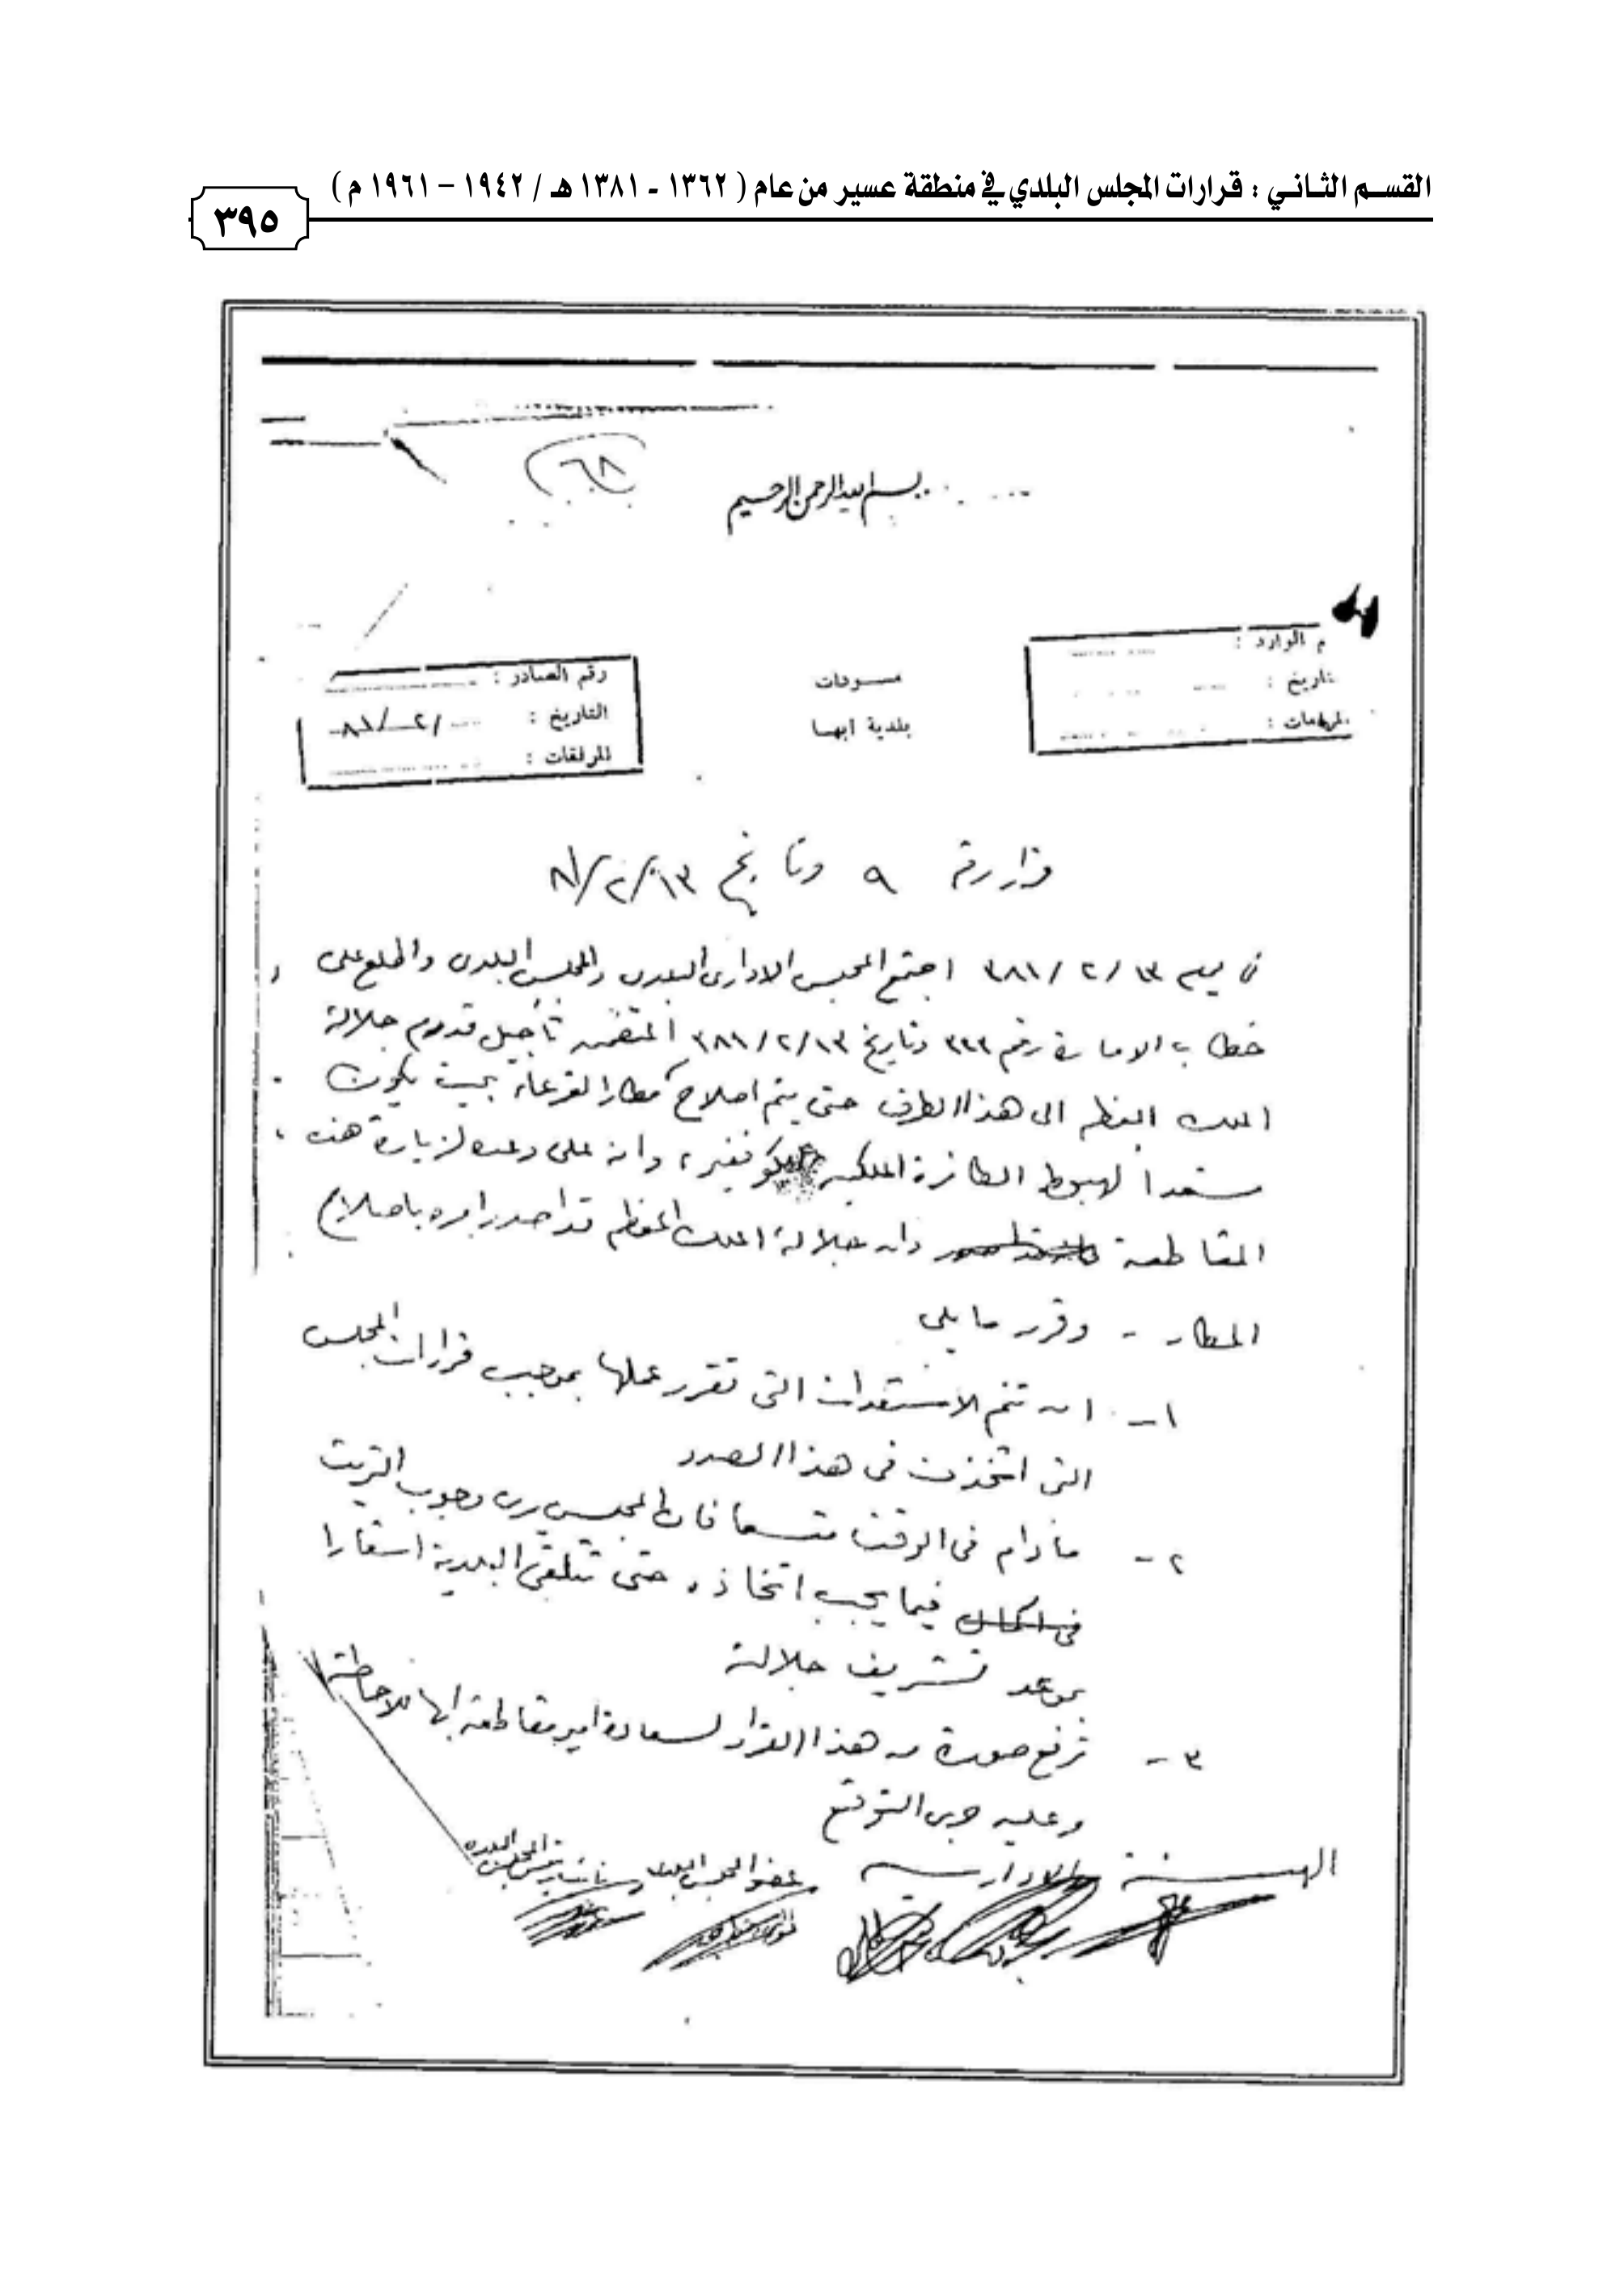 القسم الثاني : قرارات المجلس البلدي في منطقة عسير من عام ( ١٣٦٢ - ١٣٨١ هـ / ١٩٤٢ – ١٩٦١ م )
٣٩٥
٦٨
بسم الله الرحمن الرحيم
م الوارد :
تاريخ :
المرفقات :
مسودات
بلدية ابها
رقم الصادر :
التاريخ : / ٢ / ٨١
المرفقات :
قرار رقم ٩ وتاريخ ٨١/٢/١٣
في يوم ٣٨١/٢/١٣ اجتمع المجلس الاداري البلدي والمجلس البلدي واطلع على
خطاب الامارة رقم ٣٢٣ وتاريخ ٣٨١/٢/١٣ المتضمن تأجيل قدوم جلالة
الملك المعظم الى هذا الطرف حتى يتم اصلاح مطار القرعاء بحيث يكون
مستعدا لهبوط الطائرة الملكية وانه على وعده لزيارة هذه
المقاطعة وان جلالة الملك المعظم قد اصدر امره باصلاح
المطار - وقرر ما يلي
١- ان تتم الاستعدادات التي تقرر عملها بموجب قرارات المجلس
التي اتخذت في هذا الصدد
٢- مادام في الوقت متسعا فان المجلس يرى وجوب التريث
فيما يجب اتخاذه حتى تتلقى البلدية اشعارا
بموعد تشريف جلالته
٣- ترفع صورة من هذا القرار لسعادة امير مقاطعة ابها للاحاطة
وعليه جرى التوقيع
الهيئة الادارية
عضو المجلس البلدي
نائب رئيس المجلس البلدي